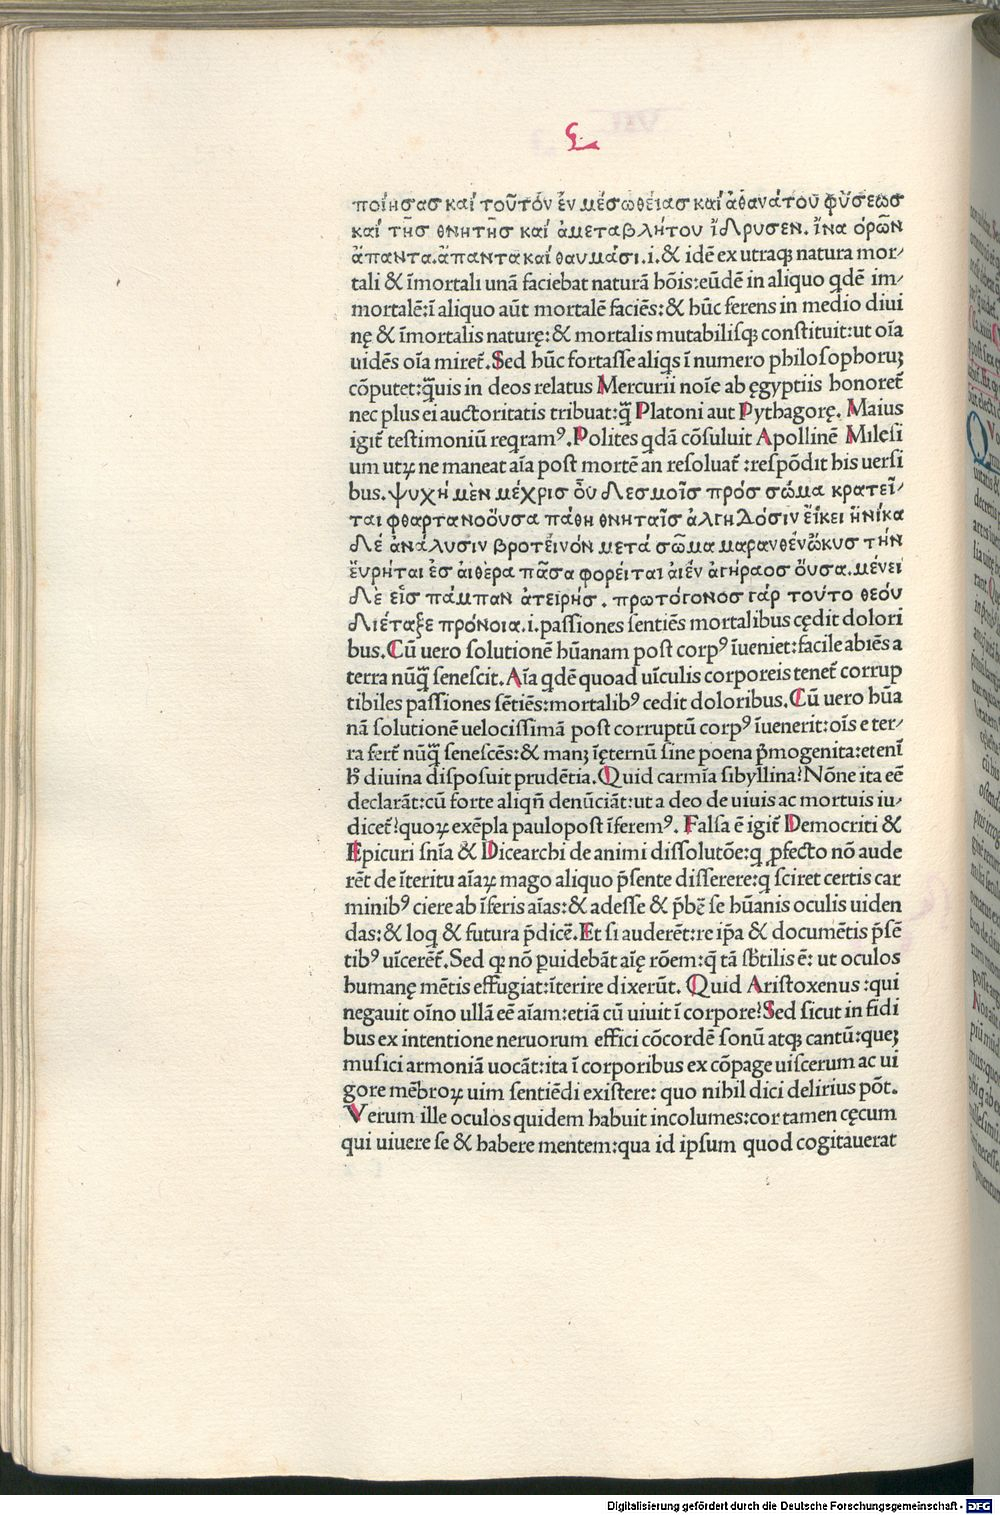 L
ποίησασ καί τοῦτόν ἐν μέσωθείασ καί ἀθανάτου φύσεωσ
καί τῆσ θνητῆσ καί ἀμεταβλήτου ἵδρυσεν. ἵνα ὁρῶν
ἅπαντα.ἅπαντα καί θαυμάσι.i.& idē ex utraqꝫ natura mor⸗
tali & īmortali unā faciebat naturā hōis:eūdē in aliquo qdē im⸗
mortalē:ī aliquo aūt mortalē faciēs:& hūc ferens in medio diui
nę & īmortalis naturę:& mortalis mutabilisqꝫ constituit:ut oīa
uidēs oīa miret̃.Sed hūc fortasse aliqs ī numero philosophoruꝫ
cōputet:q̃uis in deos relatus Mercurii noīe ab ęgyptiis honoret̃
nec plus ei auctoritatis tribuat:q̃ Platoni aut Pythagorę. Maius
igit̃ testimoniū reqramꝰ.Polites qdā cōsuluit Apollinē Milesi
um utꝝ ne maneat aīa post mortē an resoluat̃ :respōdit his uersi
bus.ψυχή μὲν μέχρισ οὗ δεσμοῖσ πρόσ σῶμα κρατεῖ⸗
ται φθαρτανοόυσα πάθη θνηταῖσ ἀλγηδόσιν εἴκει ἡνίκα
δέ ἀνάλυσιν βροτεἵνόν μετά σῶμα μαρανθένὤκυσ τήν
ἕυρήται ἐσ αιθέρα πᾶσα φορέιται αἰέν ἀγήραοσ ὅυσα.μένει
δὲ εἶσ πάμπαν ἀτειρήσ . πρωτόγονοσ γάρ τούτο θεόυ
διέταξε πρόνοια.i.passiones sentiēs mortalibus cędit dolori
bus.Cū uero solutionē hūanam post corpꝰ īueniet:facile abiēs a
terra nūq̃ senescit.Aīa qdē quoad uīculis corporeis tenet̃ corrup
tibiles passiones sētiēs:mortalibꝰ cedit doloribus.Cū uero hūa
nā solutionē uelocissimā post corruptū corpꝰ īuenerit:oīs e ter⸗
ra fert̃ nūq̃ senescēs:& manꝫ īęternū sine poena p̄mogenita:etenī
h̄ diuina disposuit prudētia.Quid carmīa sibyllina?Nōne ita eē
declarāt:cū forte aliqñ denūciāt:ut a deo de uiuis ac mortuis iu⸗
dicet̃?quoꝝ exēpla paulopost īferemꝰ. Falsa ē igit̃ Democriti &
Epicuri snīa & Dicearchi de animi dissolutōe:q ꝓfecto nō aude
rēt de īteritu aīaꝝ mago aliquo p̄sente disserere:q sciret certis car
minibꝰ ciere ab īferis aīas:& adesse & p̄bē se hūanis oculis uiden
das:& loq & futura p̄dicē.Et si auderēt:re ip̄a & documētis p̄sē
tibꝰ uīcerēt̃.Sed qꝫ nō ꝑuidebāt aię rōem:q̄ tā sb̄tilis ē: ut oculos
humanę mētis effugiat:īterire dixerūt. Quid Aristoxenus :qui
negauit oīno ullā eē aīam:etiā cū uiuit ī corpore?Sed sicut in fidi
bus ex intentione neruorum effici cōcordē sonū atqꝫ cantū:queꝫ
musici armoniā uocāt:ita ī corporibus ex cōpage uiscerum ac ui
gore mēbroꝝ uim sentiēdi existere: quo nihil dici delirius pōt.
Verum ille oculos quidem habuit incolumes:cor tamen cęcum
qui uiuere se & habere mentem:qua id ipsum quod cogitauerat
Digitalisierung gefördert durch die Deutsche Forschungsgemeinschaft - DFG